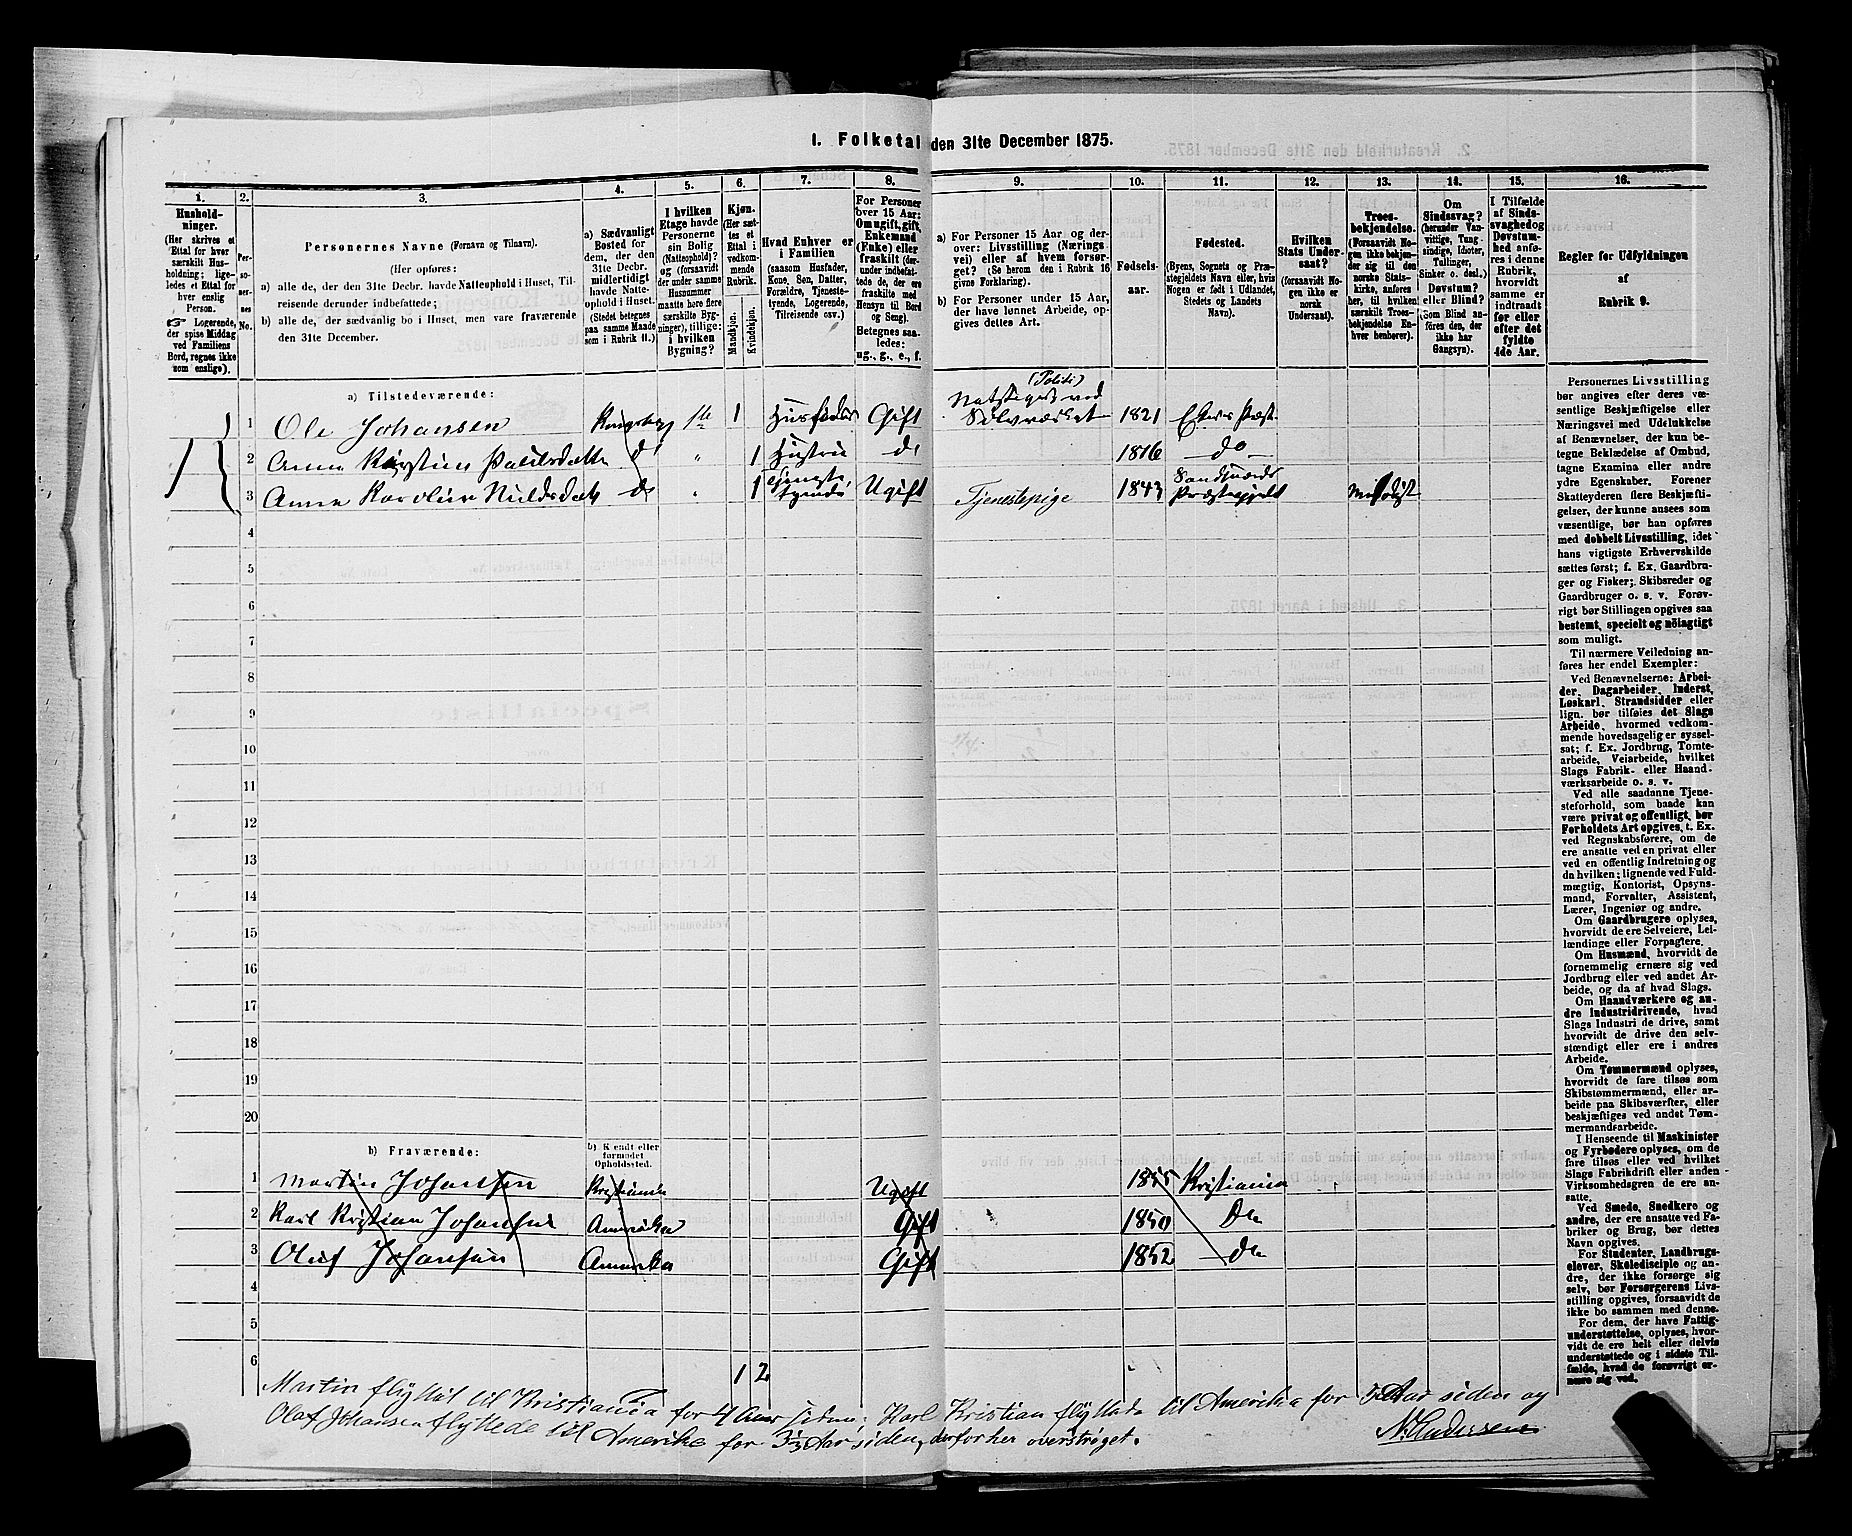 1. Folketal den 31te December 1875.
1. 2. 3. 4. 5. 6. 7. 8. 9. 10. 11. 12. 13. 14. 15. 16.
Hushold-
ninger.
(Her skrives et
Ettal for hver
særskilt Hus-
holdning; lige-
ledes et Ettal for
hver enslig
Person.
☞ Logerende,
der spise Middag
ved Familiens
Bord, regnes ikke
som enslige).
Per-
so-
ner-
nes
No.
Personernes Navne (Fornavn og Tilnavn).
(Her opføres:
a) alle de, der den 31te Decbr. havde Natteophold i Huset, Til-
reisende derunder indbefattede;
b) alle de, der sædvanlig bo i Huset, men vare fraværende
den 31te December.
a) Sædvanligt
Bosted for
dem, der den
31te Decbr.
midlertidigt
havde Natte-
ophold i Huset.
(Stedet betegnes
paa samme Maade
som i Rubrik 11.)
I hvilken
Etage havde
Personerne
sin Bolig
(Natteophold)?
og (forsaavidt
der under samme
Husnummer
maatte høre flere
særskilte Byg-
ninger), tillige:
i hvilken
Bygning?
Kjøn.
(Her sæt-
tes et
Ettal i
vedkom-
mende
Rubrik.
Mandkjøn.
Kvindekjøn.
Hvad Enhver er
i Familien
(saasom Husfader,
Kone, Søn, Datter,
Forældre, Tjeneste-
tyende, Logerende,
Tilreisende osv.)
For Personer
over 15 Aar:
Om ugift, gift,
Enkemand
(Enke) eller
fraskilt (der-
under indbefat-
tede de, der ere
fraskilte med
Hensyn til Bord
og Seng).
Betegnes saa-
ledes:
ug., g., e., f.
a) For Personer 15 Aar og der-
over: Livsstilling (Nærings-
vei) eller af hvem forsør-
get? (Se herom den i Rubrik 16
givne Forklaring).
b) For Personer under 15 Aar,
der have lønnet Arbeide, op-
gives dettes Art.
Fødsels-
aar.
Fødested.
(Byens, Sognets og Præ-
stegjeldets Navn eller, hvis
Nogen er født i Udlandet,
Stedets og Landets
Navn).
Hvilken
Stats Under-
saat?
(forsaavidt No-
gen ikke er
norsk
Undersaat).
Troes-
bekjendelse.
(Forsaavidt No-
gen ikke bekjen-
der sig til den
norske Stats-
kirke, anføres
her, til hvilken
særskilt Troes-
bekjendelse En-
hver henhører).
Om
Sindssvag?
(herunder Van-
vittige, Tung-
sindige, Idioter,
Tullinger,
Sinker o. desl.)
Døvstum?
eller Blind?
(Som Blind an-
føres den, der
ikke har
Gangsyn).
I Tilfælde
af Sinds-
svaghed og
Døvstum-
hed anfø-
res i denne
Rubrik,
hvorvidt
samme er
indtraadt
før eller
efter det
fyldte
4de Aar.
Regler for Udfyldningen
af
Rubrik 9.
a) Tilstedeværende:
1 Ole Johansen Kongsberg 1te 1 Husfader Gift (Politi) ved Sølvværket 1821 Ekers Præst
2 Anna Kirstine Paulsdatter do " 1 Hustru do 1816 do
3 Anna Karoline Nieldsdatt do " 1 Tjeneste tyende Ugift Tjenestepige 1843 Sandsværds Præstegjeld Metodist
4
5
6
7
8
9
10
11
12
13
14
15
16
17
18
19
20
b) Fraværende:
b) Kendt eller
formodet
Opholdssted.
1 Martin Johansen Kristiania Ugift 1855 Kristiania
2 Karl Kristian Johansen Amerika Gift 1850 Do
3 Oluf Johansen Amerika Gift 1852 Do
4
5
6 1 2
Martin flyttet til Kristiania for 4 Aar siden; Karl Kristian flyttede til Amerika for 5 Aar siden og
Olaf Johansen flyttede til Amerika for 3½ Aar siden, derfor her overstrøget.
N. Andersen
Personernes Livsstilling
bør angives efter deres væ-
sentlige Beskjæftigelse eller
Næringsvei med Udelukkelse
af Benævnelser, der kun be-
tegne Beklædelse af Ombud,
tagne Examina eller andre
ydre Egenskaber. Forener
Skatteyderen flere Beskjæfti-
gelser, der kunne ansees som
væsentlige, bør han opføres
med dobbelt Livsstilling, idet
hans vigtigste Erhvervskilde
sættes først; f. Ex. Gaardbru-
ger og Fisker; Skibsreder og
Gaardbruger o. s. v. Forøv-
rigt bør Stillingen opgives saa
bestemt, specielt og nöiagtigt
som muligt.
Til nærmere Veiledning an-
føres her endel Exempler:
Ved Benævnelserne: Arbei-
der, Dagarbeider, Inderst,
Løskarl, Strandsidder eller
lign. bør tilføies det Slags
Arbeide, hvormed vedkom-
mende hovedsagelig er syssel-
sat; f. Ex. Jordbrug, Tomte-
arbeide, Veiarbeide, hvilket
Slags Fabrik- eller Haand-
værksarbeide o. s. v.
Ved alle saadanne Tjene-
steforhold, som baade kan
være privat og offentligt, bør
Forholdets Art opgives, t. Ex.
ved Regnskabsførere, om de
ere ansatte ved en privat eller
ved en offentlig Indretning og
da hvilken; lignende ved Fuld-
mægtig, Kontorist, Opsyns-
mand, Forvalter, Assistent,
Lærer, Ingeniør og andre.
Om Gaardbrugere oplyses,
hvorvidt de ere Selveiere, Lei-
lændinge eller Forpagtere.
Om Husmænd, hvorvidt de
fornemmelig ernære sig ved
Jordbrug eller ved andet Ar-
beide, og da af hvad Slags.
Om Haandværkere og an-
dre industridrivende, hvad
Slags Industri de drive, samt
hvorvidt de drive den selv-
stændigt eller ere i andres
Arbeide.
Om Tømmermænd oplyses,
hvorvidt de fare tilsøs som
Skibstømmermænd, eller ar-
beide paa Skibsværfter, eller
beskjæftiges ved andet Tøm-
mermandsarbeide.
I Henseende til Maskinister
og Fyrbødere oplyses, om de
fare tilsøs eller ved hvilket
Slags Fabrikdrift eller anden
Virksomhedsgren de ere an-
satte.
Ved Smede, Snedkere og
andre, der ere ansatte ved Fa-
briker og Brug, bør dettes
Navn opgives.
For Studenter, Landbrugs-
elever, Skoledisciple og an-
dre, der ikke forsørge sig
selv, bør Forsørgerens Livs-
stilling opgives, forsaavidt de
ikke bo sammen med denne.
For dem, der have Fattig-
understøttelse, oplyses, hvor-
vidt de ere helt eller delvis
understøttede og i sidste Til-
fælde, hvad de forøvrigt er-
nære sig ved.